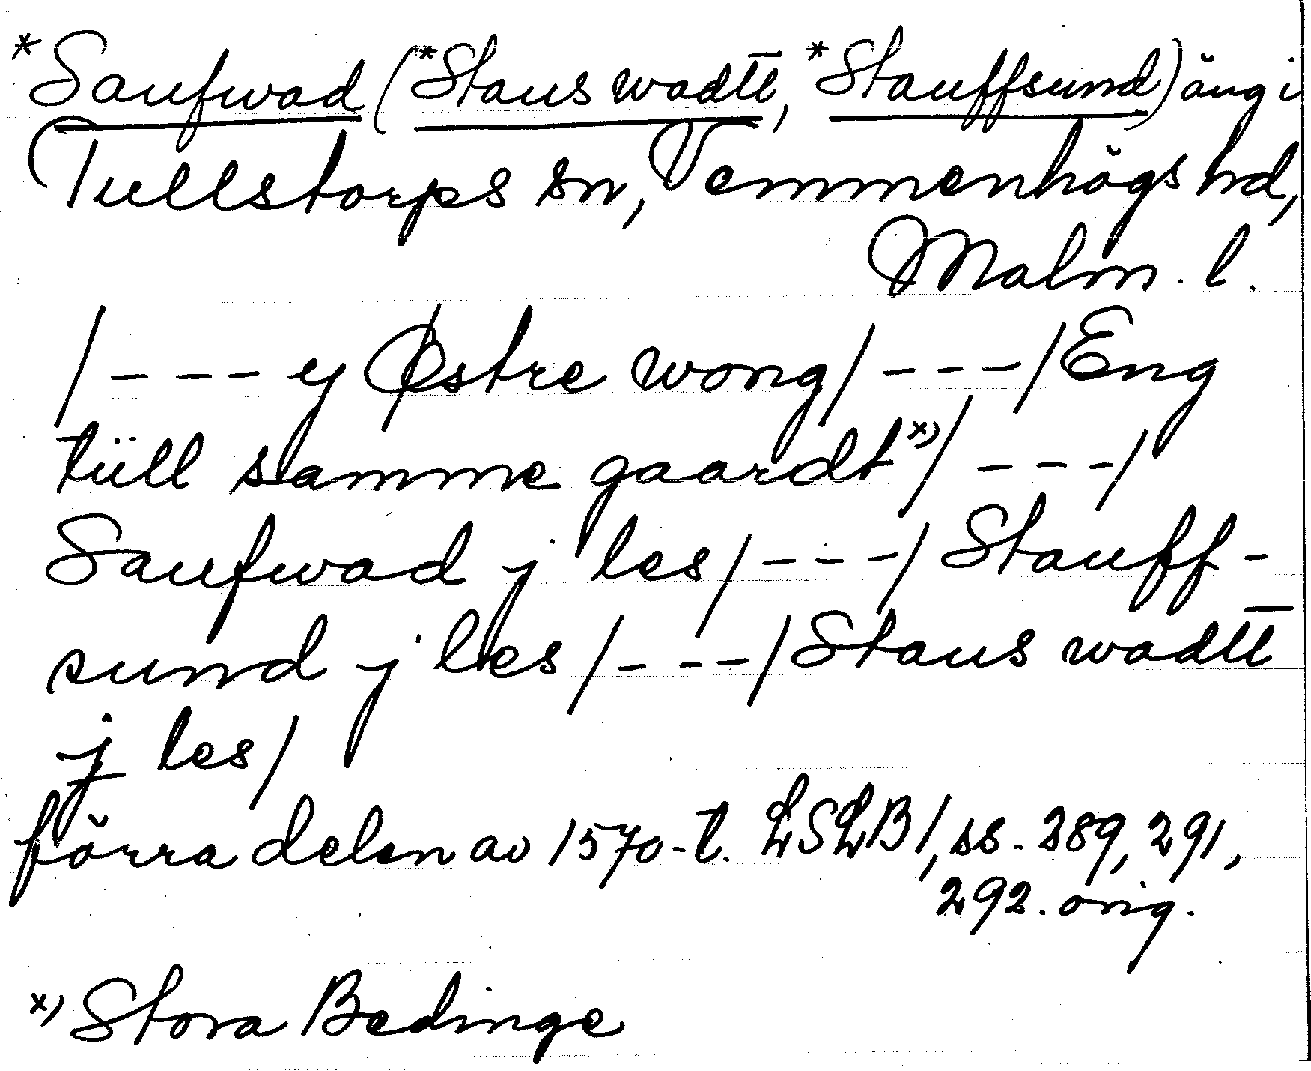 *Saufwad (*Staus wadtt̄, *Stauffsund) äng i
Tullstorps sn, Vemmenhögs hd,
Malm. l.
/ - - - y Østre wong/ - - - / Eng
tüll samme gaardt x)/ - - - /
Saufwad j les/ - - - / Stauff-
sund j les / - - - / Staus wadtt̄
j les /
förra delen av 1570-t. LSLB 1, ss. 289, 291,
292. orig.
x) Stora Bedinge